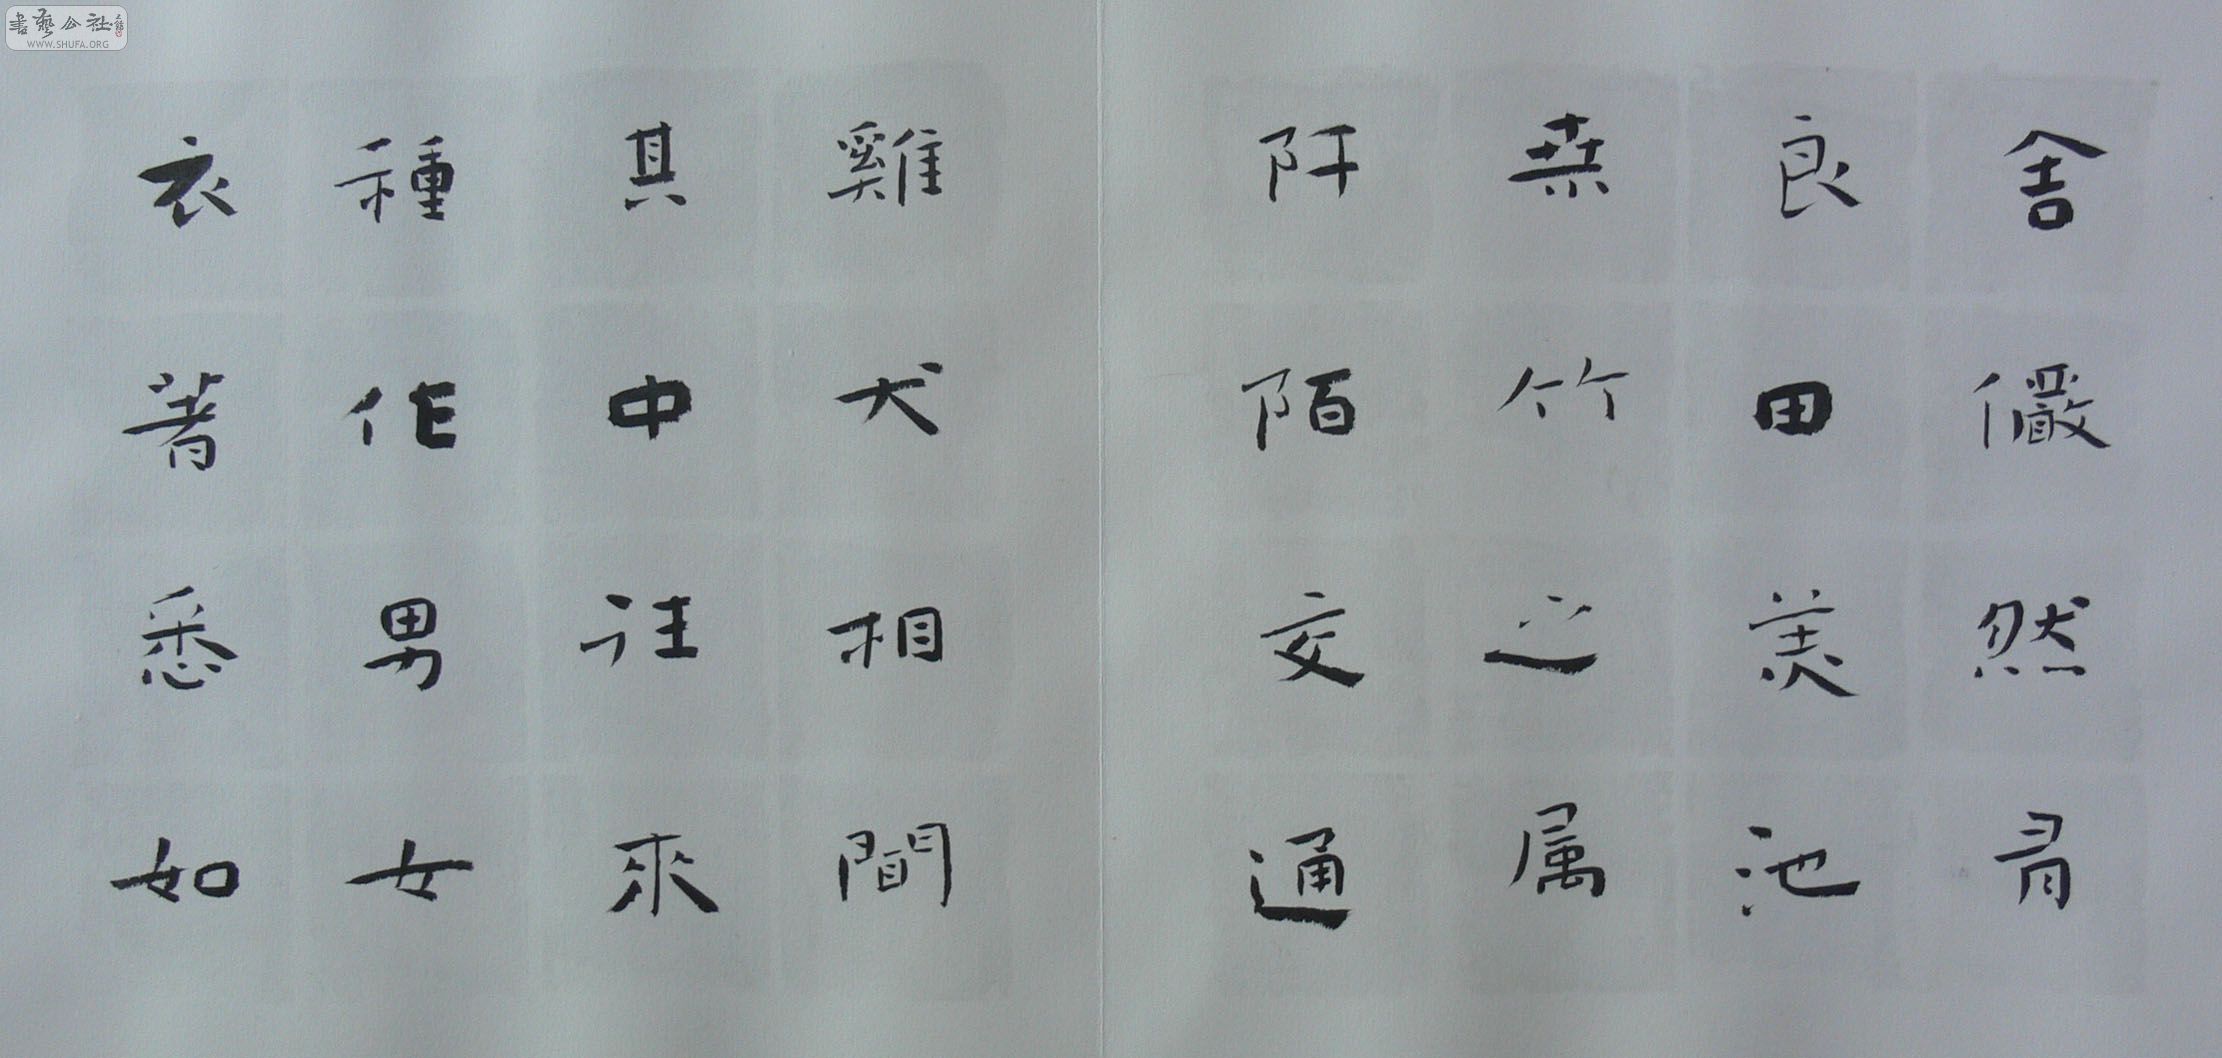 舍儼然有
良田美池
桒竹之属
阡陌交通
雞犬相聞
其中往來
種作男女
衣著悉如
書藝公社
WWW.SHUFA.ORG